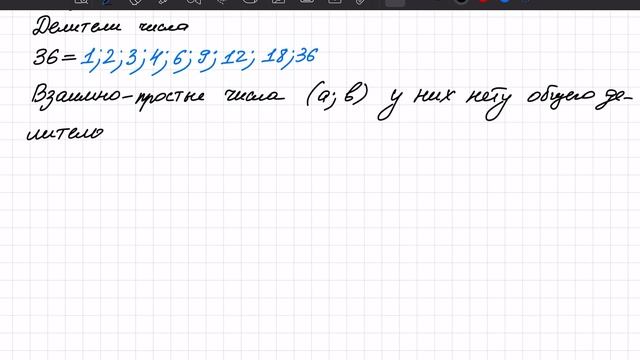 Делители числа
36 = 1; 2; 3; 4; 6; 9; 12; 18; 36
Взаимно-простые числа (а; в) у них нету общего де-
лителя